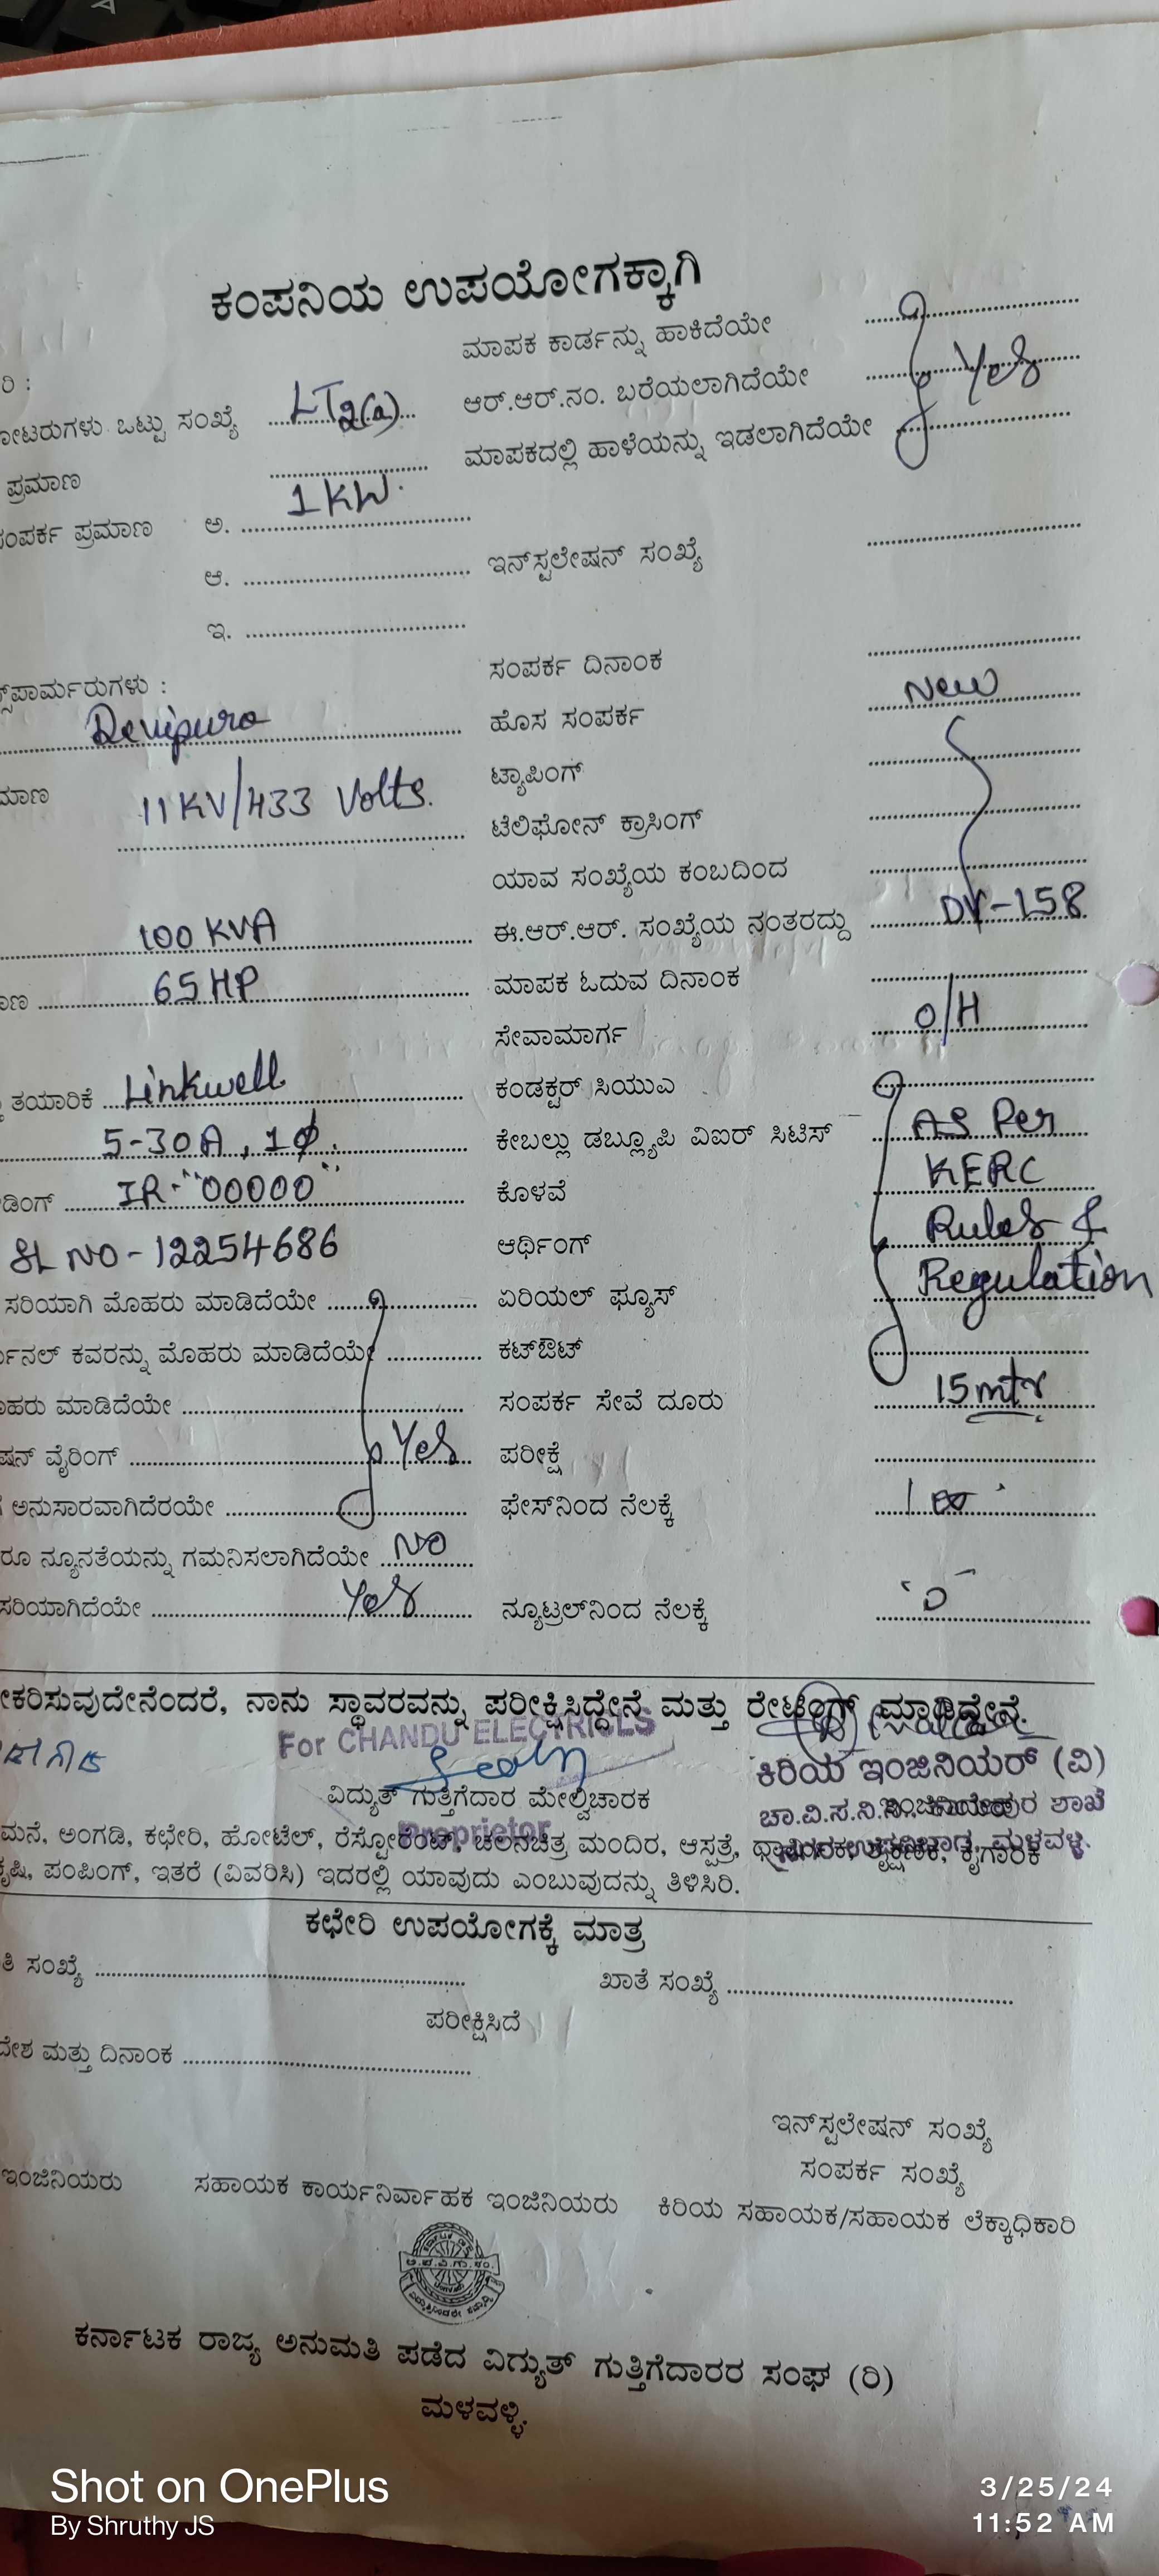 ಕಂಪನಿಯ ಉಪಯೋಗಕ್ಕಾಗಿ
ಮಾಪಕ ಕಾರ್ಡನ್ನು ಹಾಕಿದೆಯೇ
ರಿ :
ಆರ್.ಆರ್.ನಂ. ಬರೆಯಲಾಗಿದೆಯೇ Yes
ೋಟರುಗಳು ಒಟ್ಟು ಸಂಖ್ಯೆ LT2(a)
ಮಾಪಕದಲ್ಲಿ ಹಾಳೆಯನ್ನು ಇಡಲಾಗಿದೆಯೇ
ಪ್ರಮಾಣ
ಸಂಪರ್ಕ ಪ್ರಮಾಣ ಅ. 1 KW.
ಆ. ಇನ್‌ಸ್ಟಲೇಷನ್ ಸಂಖ್ಯೆ
ಇ.
ಸಂಪರ್ಕ ದಿನಾಂಕ
ನ್ಸ್‌ಪಾರ್ಮರುಗಳು :
Devipura ಹೊಸ ಸಂಪರ್ಕ New
ಮಾಣ 11 KV/433 Volts. ಟ್ಯಾಪಿಂಗ್
ಟೆಲಿಫೋನ್ ಕ್ರಾಸಿಂಗ್
ಯಾವ ಸಂಖ್ಯೆಯ ಕಂಬದಿಂದ
100 KVA ಈ.ಆರ್.ಆರ್. ಸಂಖ್ಯೆಯ ನಂತರದ್ದು DV-158
ಾಣ 65 HP ಮಾಪಕ ಓದುವ ದಿನಾಂಕ
ಸೇವಾಮಾರ್ಗ O/H
ತಯಾರಿಕೆ Linkwell ಕಂಡಕ್ಟರ್ ಸಿಯುಎ
5-30A, 1ϕ. ಕೇಬಲ್ಲು ಡಬ್ಲ್ಯೂಪಿ ವಿಐಆರ್ ಸಿಟಿಸ್ AS Per
ಡಿಂಗ್ IR-"00000" ಕೊಳವೆ KERC
SL NO-12254686 ಆರ್ಥಿಂಗ್ Rules &
ಸರಿಯಾಗಿ ಮೊಹರು ಮಾಡಿದೆಯೇ ಏರಿಯಲ್ ಫ್ಯೂಸ್ Regulation
ರ್ಮಿನಲ್ ಕವರನ್ನು ಮೊಹರು ಮಾಡಿದೆಯೇ ಕಟ್‌ಔಟ್
ೊಹರು ಮಾಡಿದೆಯೇ ಸಂಪರ್ಕ ಸೇವೆ ದೂರು 15 mtr
ಷನ್ ವೈರಿಂಗ್ Yes ಪರೀಕ್ಷೆ
ಅನುಸಾರವಾಗಿದೆರಯೇ ಫೇಸ್‌ನಿಂದ ನೆಲಕ್ಕೆ
ರೂ ನ್ಯೂನತೆಯನ್ನು ಗಮನಿಸಲಾಗಿದೆಯೇ NO
ಸರಿಯಾಗಿದೆಯೇ Yes ನ್ಯೂಟ್ರಲ್‌ನಿಂದ ನೆಲಕ್ಕೆ
ೀಕರಿಸುವುದೇನೆಂದರೆ, ನಾನು ಸ್ಥಾವರವನ್ನು ಪರೀಕ್ಷಿಸಿದ್ದೇನೆ ಮತ್ತು ರೇಟಿಂಗ್ ಮಾಡಿದ್ದೇನೆ.
For CHANDU ELECTRICLS
ಕಿರಿಯ ಇಂಜಿನಿಯರ್ (ವಿ)
ವಿದ್ಯುತ್ ಗುತ್ತಿಗೆದಾರ ಮೇಲ್ವಿಚಾರಕ
Proprietor
ಮನೆ, ಅಂಗಡಿ, ಕಛೇರಿ, ಹೋಟೆಲ್, ರೆಸ್ಟೋರೆಂಟ್, ಚಲನಚಿತ್ರ ಮಂದಿರ, ಆಸ್ಪತ್ರೆ,
ಕೃಷಿ, ಪಂಪಿಂಗ್, ಇತರೆ (ವಿವರಿಸಿ) ಇದರಲ್ಲಿ ಯಾವುದು ಎಂಬುವುದನ್ನು ತಿಳಿಸಿರಿ.
ಕಛೇರಿ ಉಪಯೋಗಕ್ಕೆ ಮಾತ್ರ
ತಿ ಸಂಖ್ಯೆ ಖಾತೆ ಸಂಖ್ಯೆ
ಪರೀಕ್ಷಿಸಿದೆ
ದೇಶ ಮತ್ತು ದಿನಾಂಕ
ಇನ್‌ಸ್ಟಲೇಷನ್ ಸಂಖ್ಯೆ
ಸಂಪರ್ಕ ಸಂಖ್ಯೆ
ಇಂಜಿನಿಯರು ಸಹಾಯಕ ಕಾರ್ಯನಿರ್ವಾಹಕ ಇಂಜಿನಿಯರು ಕಿರಿಯ ಸಹಾಯಕ/ಸಹಾಯಕ ಲೆಕ್ಕಾಧಿಕಾರಿ
ಕರ್ನಾಟಕ ರಾಜ್ಯ ಅನುಮತಿ ಪಡೆದ ವಿದ್ಯುತ್ ಗುತ್ತಿಗೆದಾರರ ಸಂಘ (ರಿ)
ಮಳವಳ್ಳಿ.
Shot on OnePlus
By Shruthy JS
3/25/24
11:52 AM